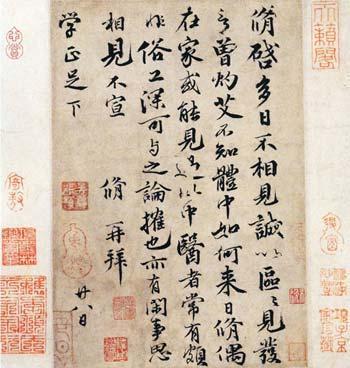 脩啓多日不相見誠以區區見發
言曾灼艾不知體中如何來日脩偶
在家或能見過此中醫者常有頗
非俗工深可與之論搉也亦有閑事思
相見不宣 脩再拜
廿八日
學正足下
天籟閣